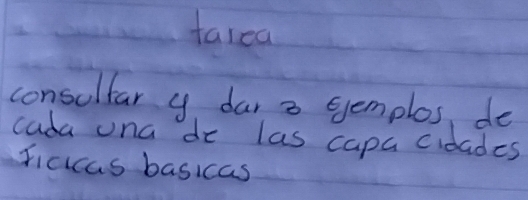 tarea
consultar y dar 3 ejemplos, de
cada una de las capacidades
ficicas basicas